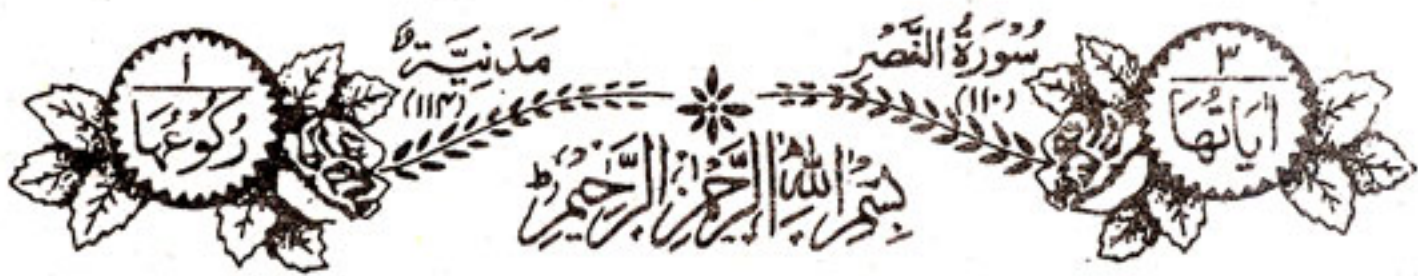 ٣
اٰيَاتُهَا
سُوْرَةُ النَّصْرِ
(١١٠)
مَدَنِيَّةٌ
(١١۴)
١
رُكُوْعُهَا
بِسْمِ اللّٰهِ الرَّحْمٰنِ الرَّحِيْمِ ط